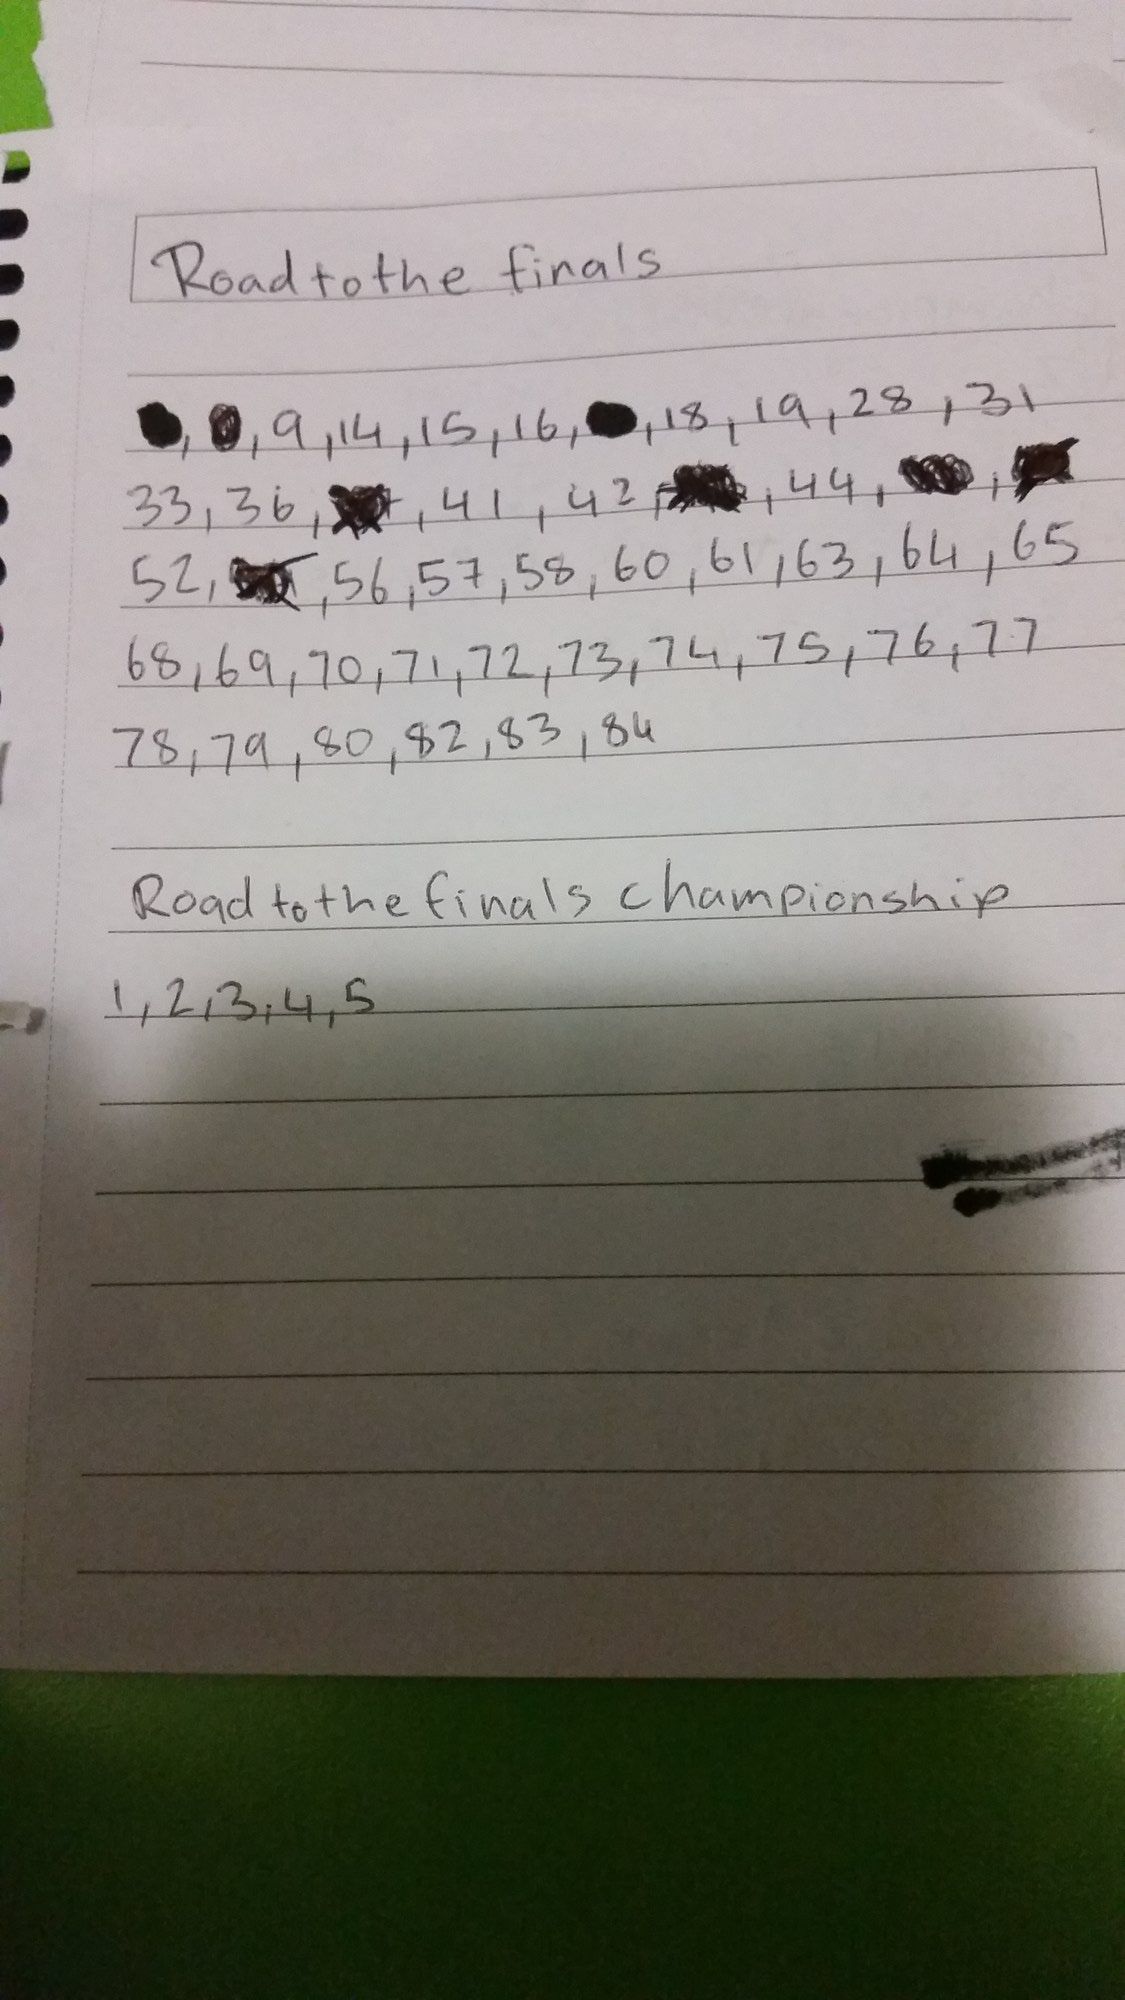 Road to the finals
9, 14, 15, 16, 18, 19, 28, 31
33, 36, 41, 42, 44,
52, 56, 57, 58, 60, 61, 63, 64, 65
68, 69, 70, 71, 72, 73, 74, 75, 76, 77
78, 79, 80, 82, 83, 84
Road to the finals championship
1, 2, 3, 4, 5